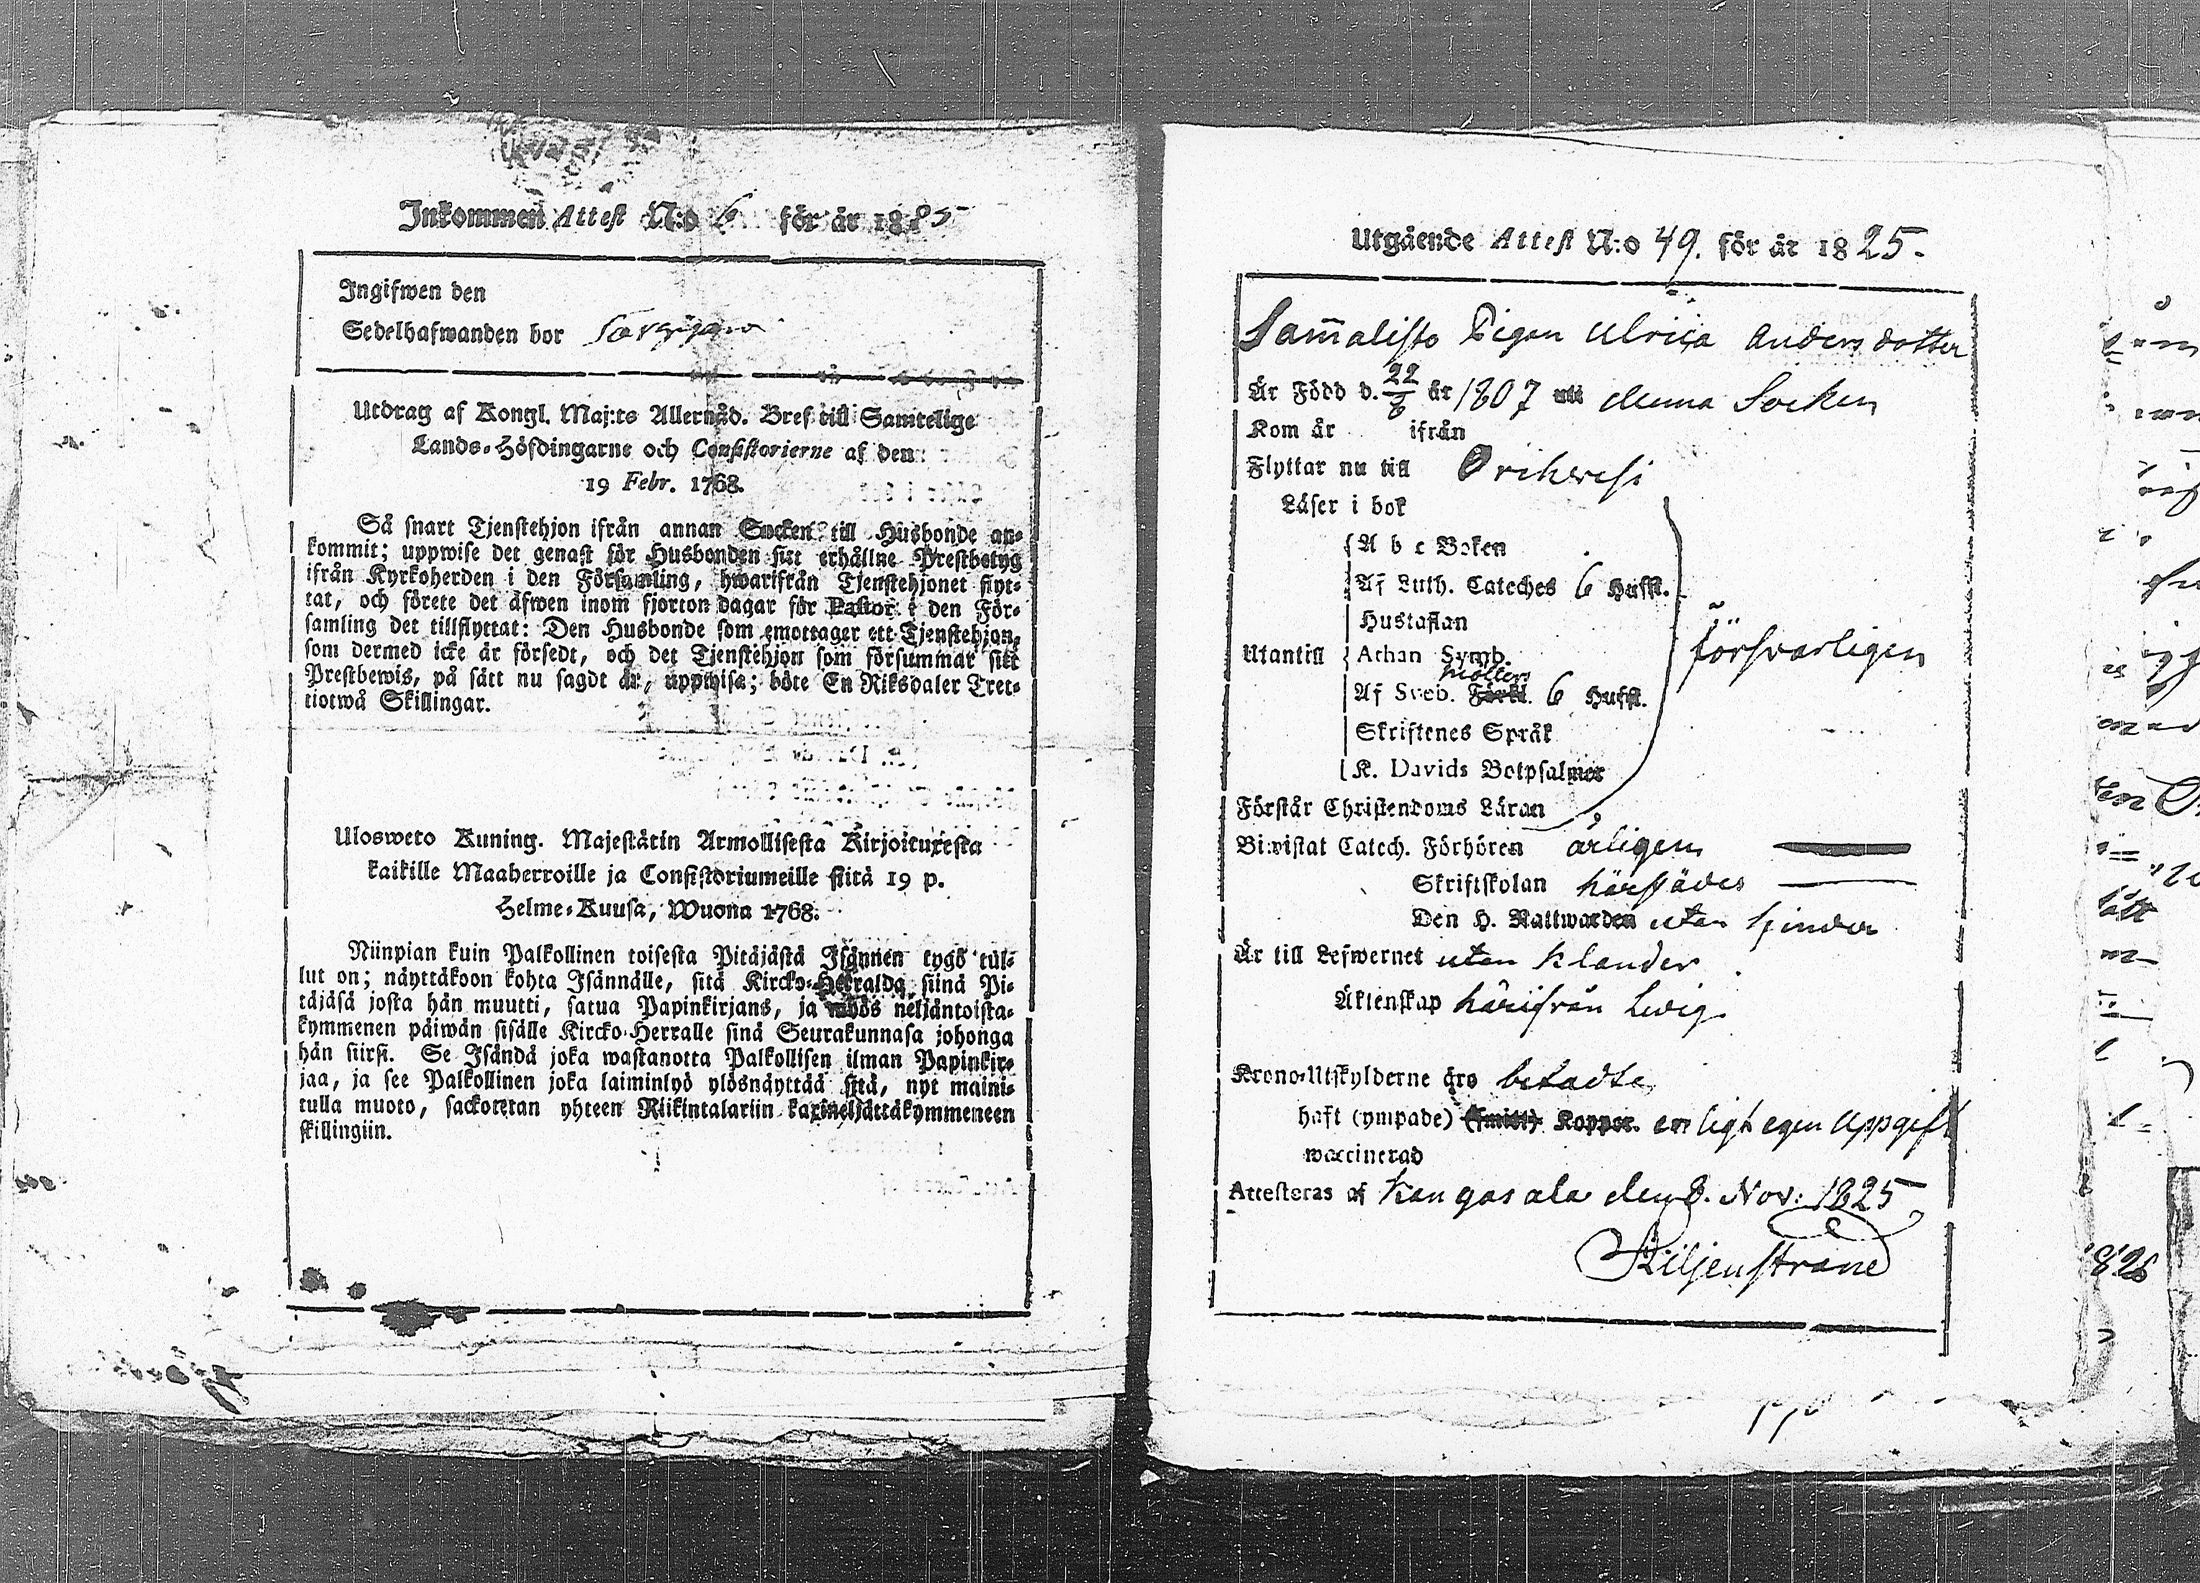 Inkommen Attest N:o 6 för år 1825
Ingifwen den
Sedelhafwanden bor
Utdrag af Kongl. Maj:ts Allernåd. Bref till Samtelige
Lands-Höfdingarne och Consistorierne af den
19 Febr. 1768.
Så snart Tjenstehjon ifrån annan Socken till Husbonde an-
kommit; uppwise det genast för Husbonden sitt erhållne Prestbetyg
ifrån Kyrkoherden i den Församling, hwarifrån Tjenstehjonet flyt-
tat, och förete det äfwen inom fjorton dagar för Pastor i den För-
samling det tillflyttat: Den Husbonde som emottager ett Tjenstehjon,
som dermed icke är försedt, och det Tjenstehjon som försummar sitt
Prestbewis, på sätt nu sagdt är, uppwisa; böte En Riksdaler Tret-
tiotwå Skillingar.
Ulosweto Kuning. Majestätin Armollisesta Kirjoituxesta
kaikille Maaherroille ja Consistoriumeille siitä 19 p.
Helme-Kuusa, Wuona 1768.
Niinpian kuin Palkollinen toisesta Pitäjästä Isännen tygö tul-
lut on; näyttäkoon kohta Isännälle, sitä Kircko-Herralda, siinä Pi-
täjäsä josta hän muutti, saatua Papinkirjans, ja myös neljäntoista-
kymmenen päiwän sisälle Kircko-Herralle sinä Seurakunnasa johonga
hän siirsi. Se Isändä joka wastanotta Palkollisen ilman Papinkir-
jaa, ja see Palkollinen joka laiminlyö ylösnäyttää sitä, nyt maini-
tulla muoto, sackotetan yhteen Riikintalariin kaxineljättäkymmeneen
skillingiin.
Utgående Attest N:o 49. för år 1825.
Sam̅alisto Pigan Ulrica Anders dotter
Är Född d. 22/6 år 1807 uti denna Socken
Kom år ifrån
Flyttar nu till Orihwesi
Läser i bok
A b c Boken
Af Luth. Cateches 6 Hufst.
Hustaflan
Utantill Athan Symb. försvarligen
Möllers
Af Sveb. Förkl. 6 Hufst.
Skriftenes Språk
K. Davids Botpsalmer
Förstår Christendoms Läran
Biwistat Catech. Förhören årligen
Skriftskolan härstädes
Den H. Nattwarden utan hinder
Är till Lefwernet utan klander
Äktenskap härifrån ledig
Krono-Utskylderne äro betalte
haft (ympade) (smitt) Koppor. enligt egen Uppgift
waccinerad
Attesteras af Kangasala den 8. Nov: 1825
Liljenstrand
1826